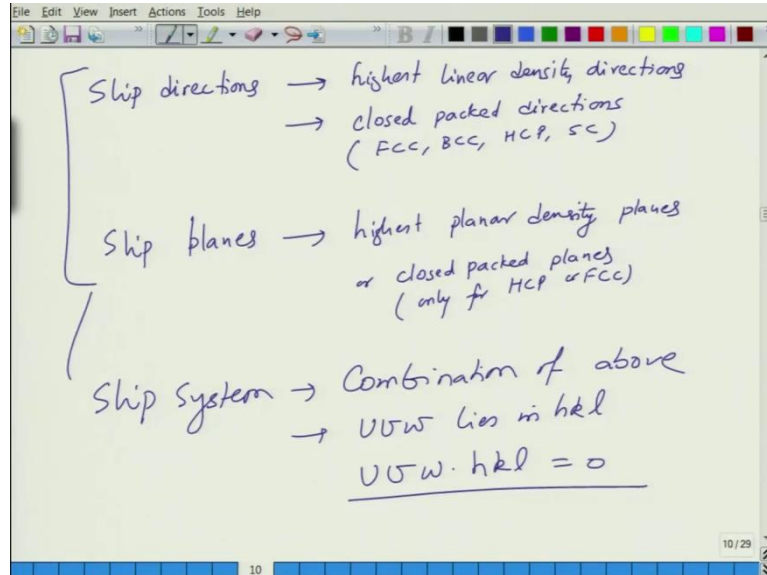 File Edit View Insert Actions Tools Help
Slip directions → highest linear density directions
→ closed packed directions
( FCC, BCC, HCP, SC )
Slip planes → highest planar density planes
or closed packed planes
( only for HCP or FCC )
Slip System → Combination of above
→ UVW lies in hkl
UVW . hkl = 0
10/29
10